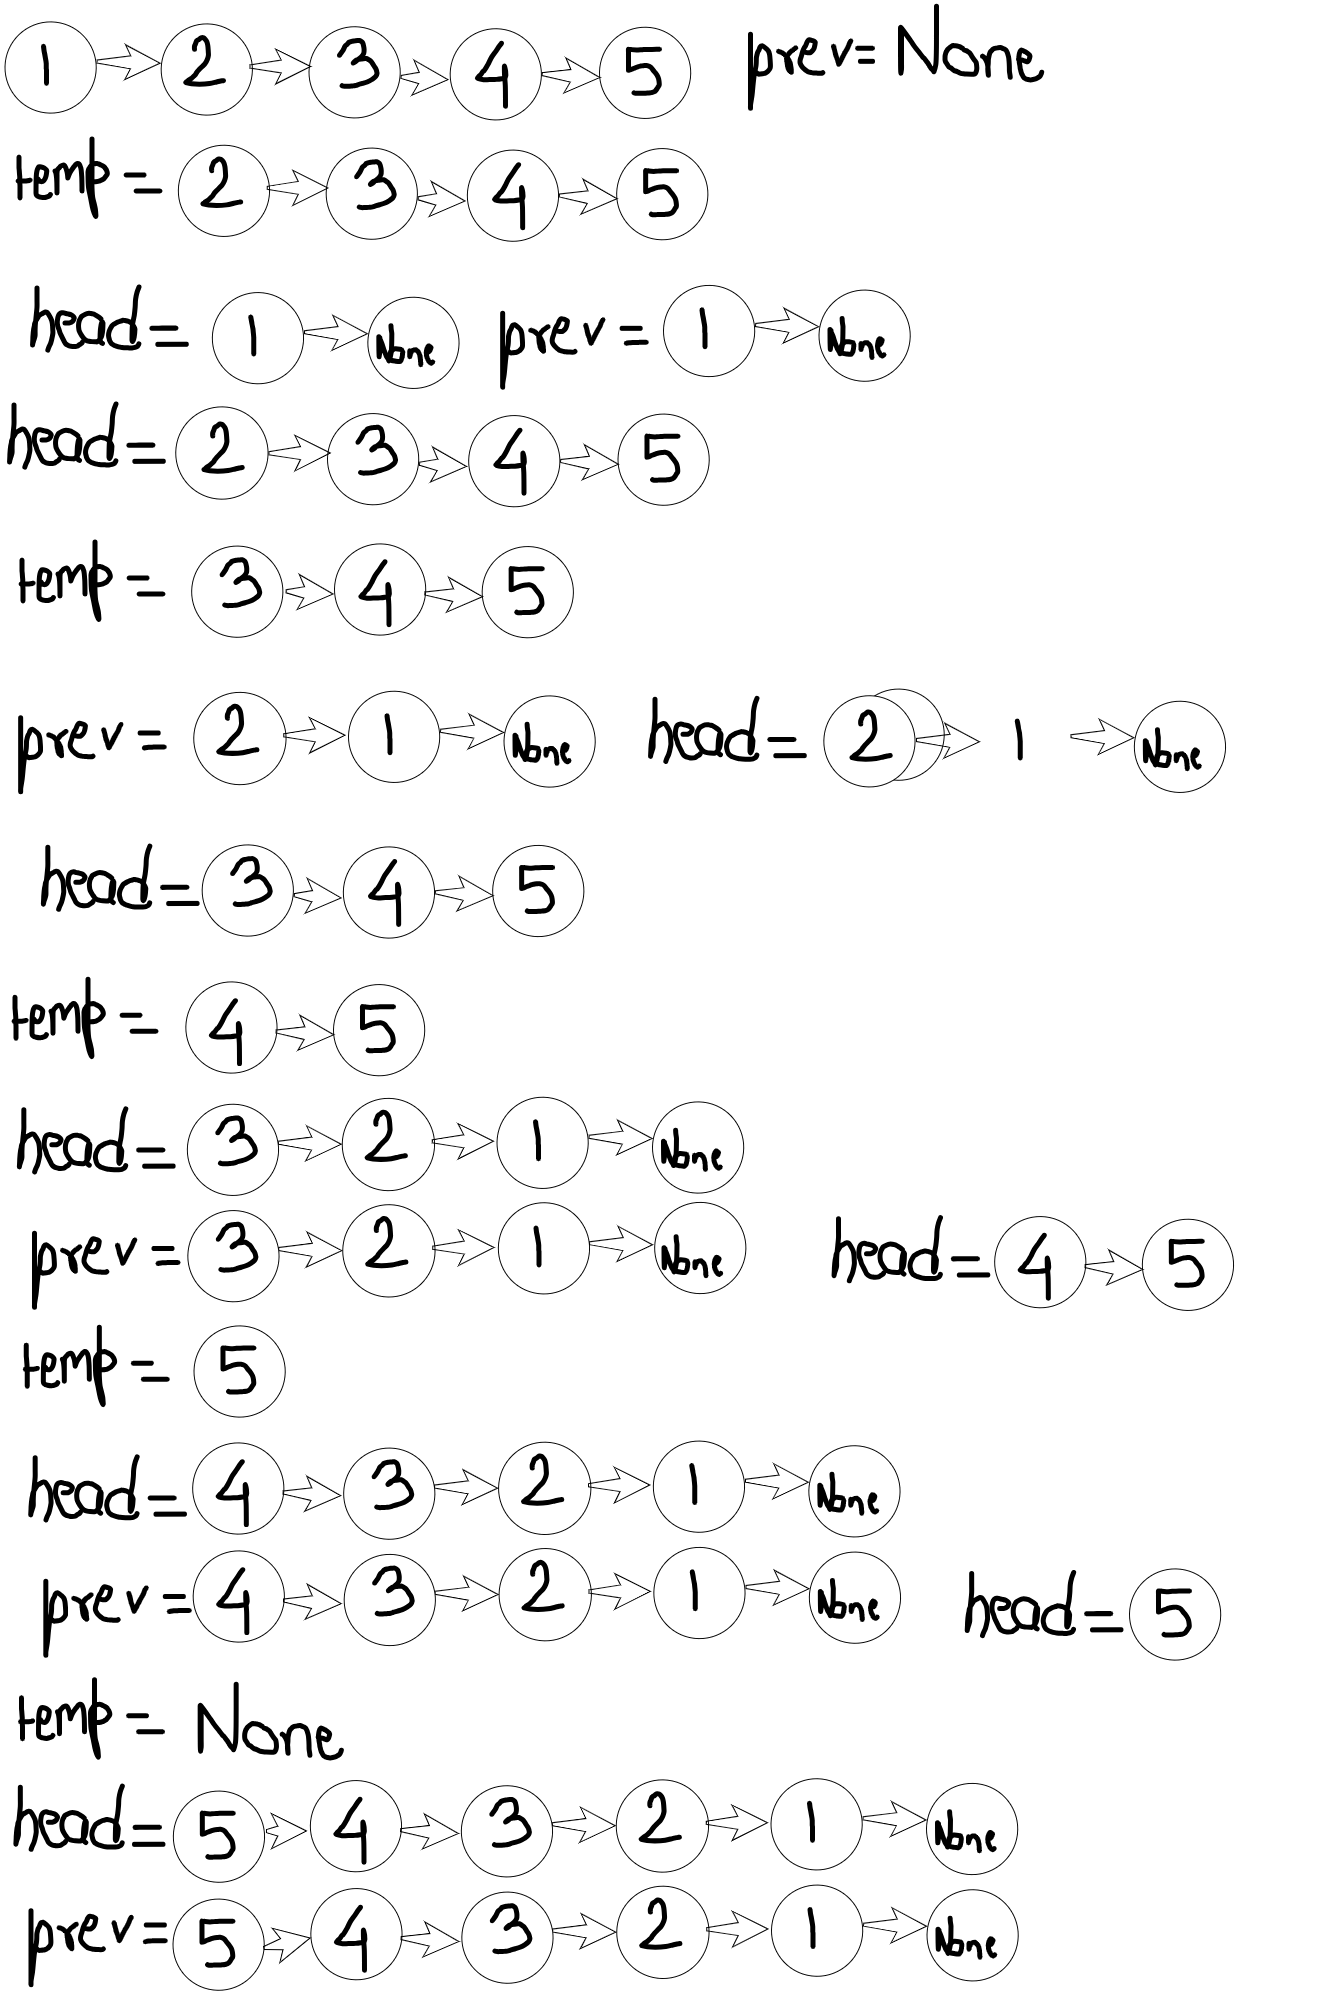 1 2 3 4 5 prev= None
temp = 2 3 4 5
head= 1 None prev = 1 None
head= 2 3 4 5
temp = 3 4 5
prev = 2 1 None head= 2 1 None
head= 3 4 5
temp = 4 5
head= 3 2 1 None
prev = 3 2 1 None head= 4 5
temp = 5
head= 4 3 2 1 None
prev = 4 3 2 1 None head= 5
temp = None
head= 5 4 3 2 1 None
prev= 5 4 3 2 1 None